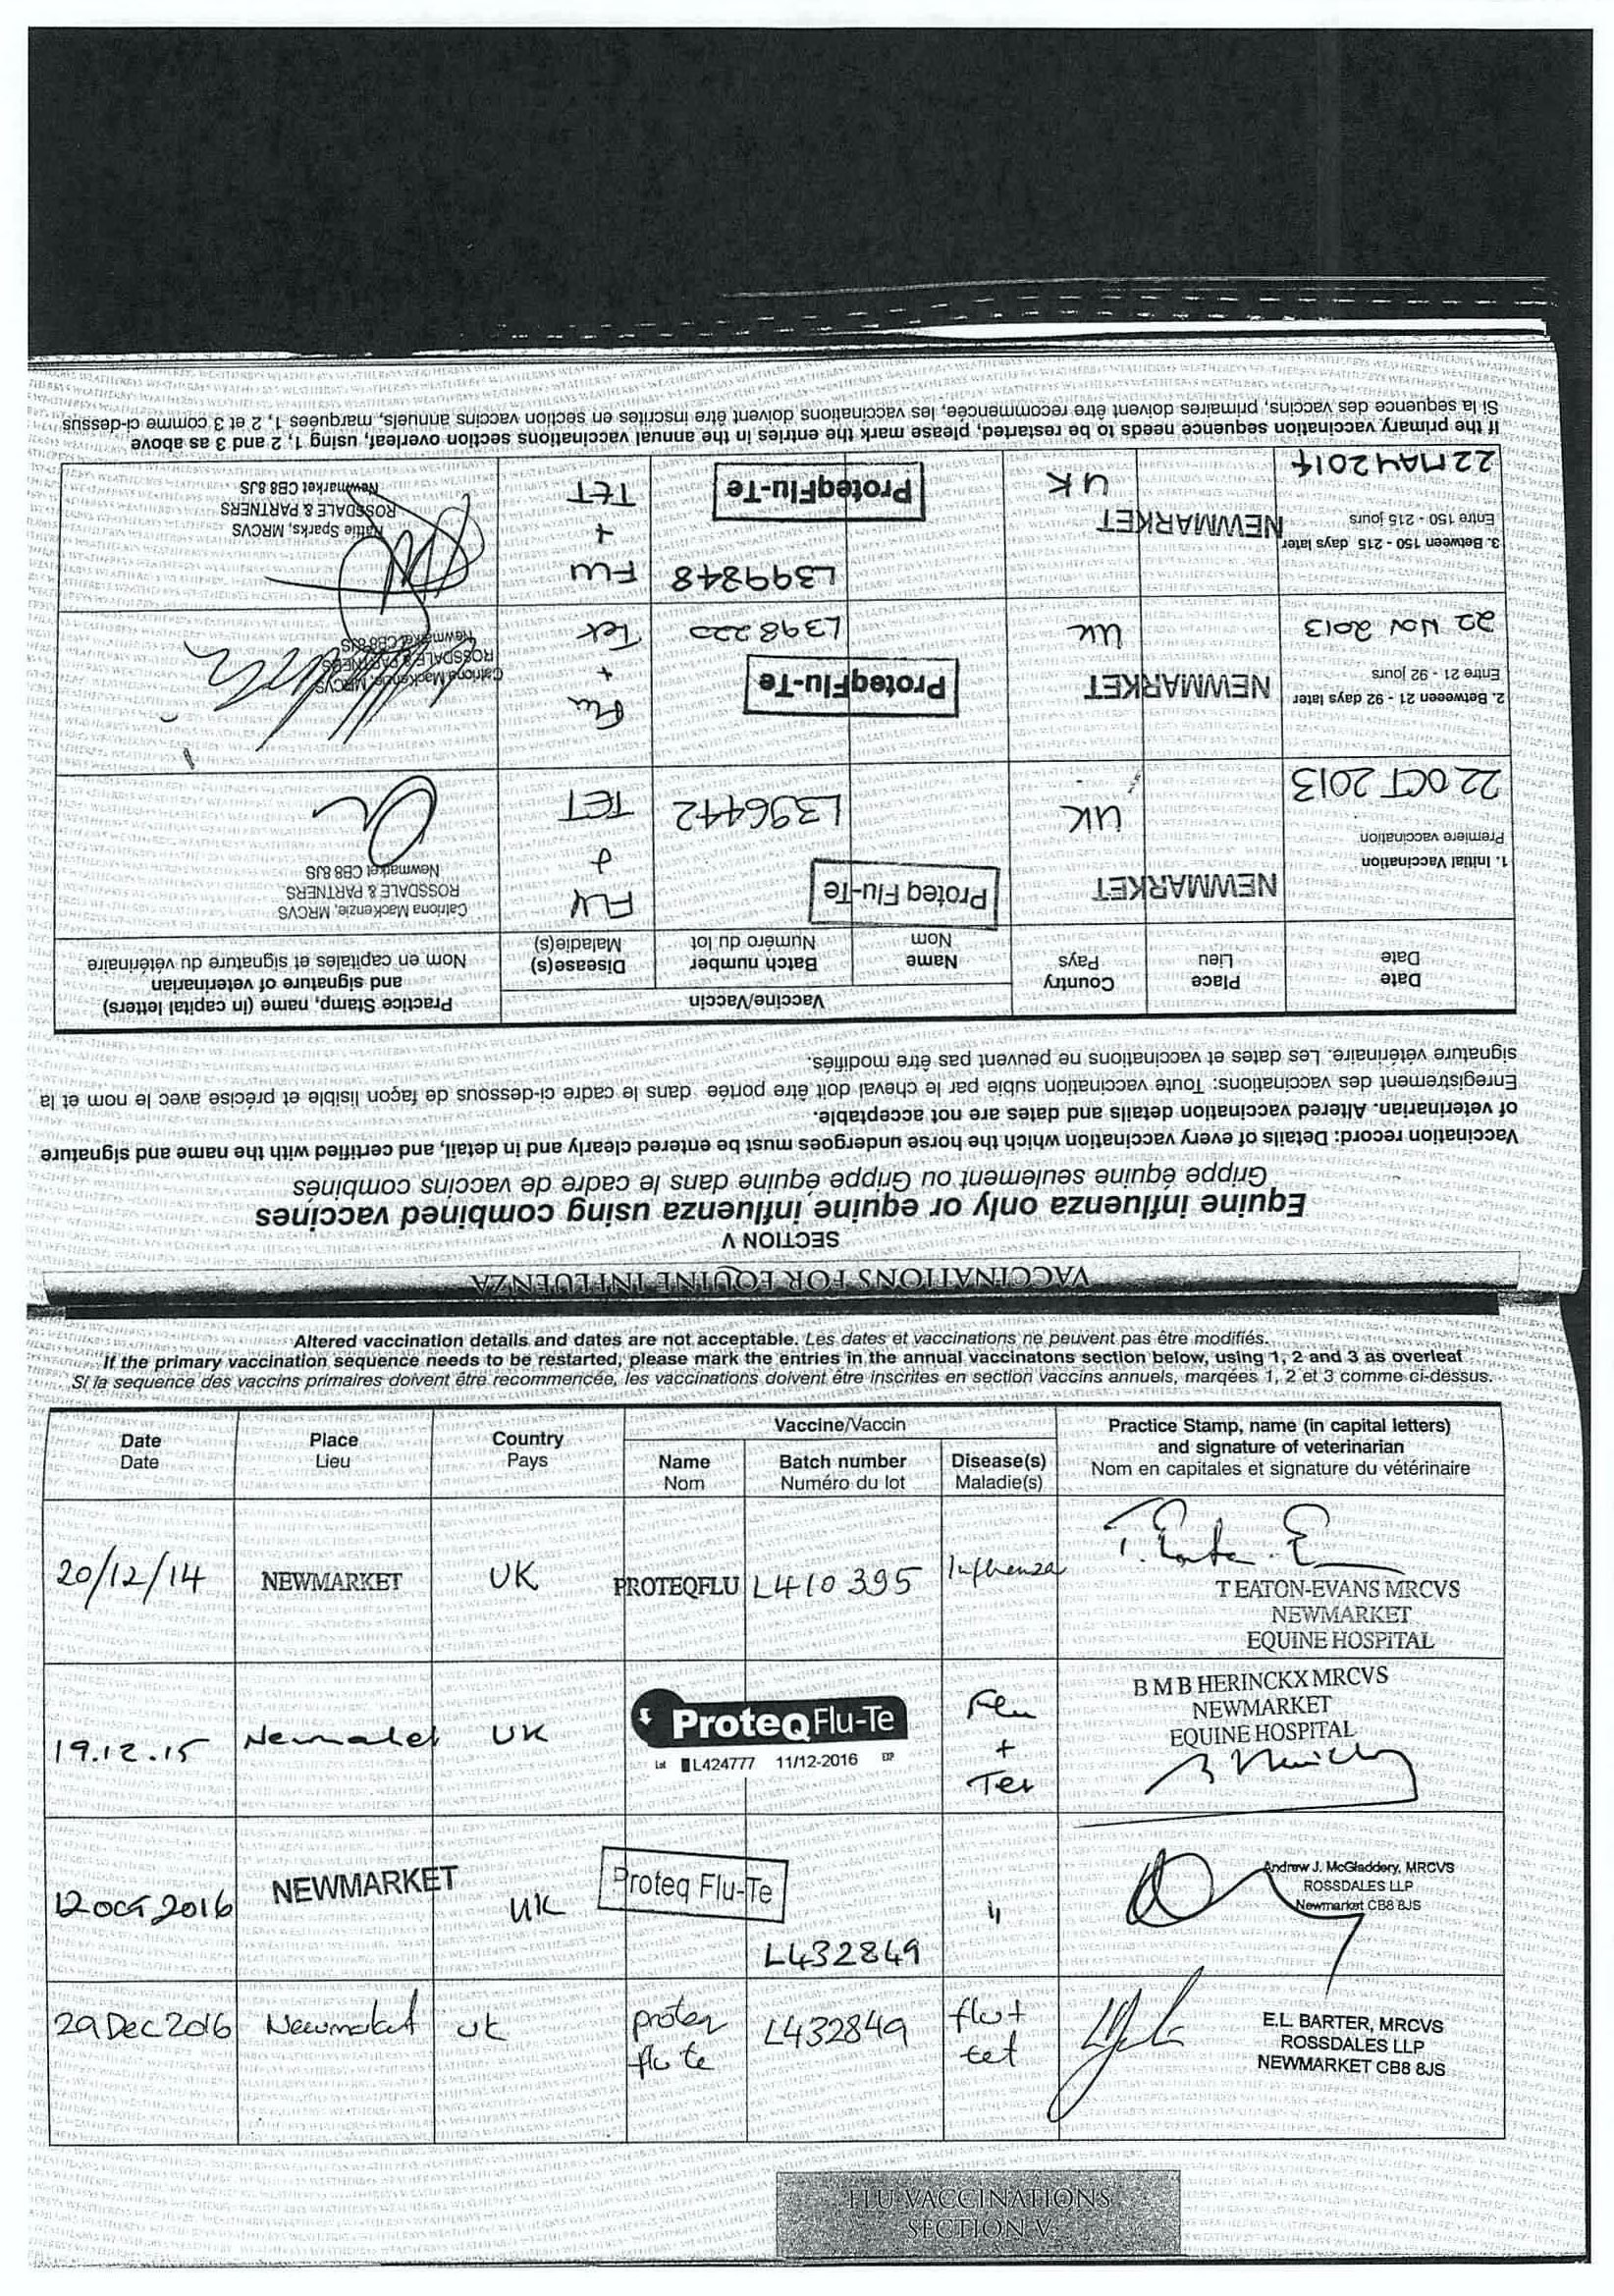 VACCINATIONS FOR EQUINE INFLUENZA
SECTION V
Equine influenza only or equine influenza using combined vaccines
Grippe équine seulement ou Grippe équine dans le cadre de vaccins combinés
Vaccination record: Details of every vaccination which the horse undergoes must be entered clearly and in detail, and certified with the name and signature
of veterinarian. Altered vaccination details and dates are not acceptable.
Enregistrement des vaccinations: Toute vaccination subie par le cheval doit être portée dans le cadre ci-dessous de façon lisible et précise avec le nom et la
signature vétérinaire. Les dates et vaccinations ne peuvent pas être modifiés.
Date
Date
Place
Lieu
Country
Pays
Vaccine/Vaccin
Name
Nom
Batch number
Numéro du lot
Disease(s)
Maladie(s)
Practice Stamp, name (in capital letters)
and signature of veterinarian
Nom en capitales et signature du vétérinaire
1. Initial Vaccination
Premiere vaccination
22 OCT 2013
NEWMARKET
UK
Proteq Flu-Te
L396442
FLU
&
TET
Catriona MacKenzie, MRCVS
ROSSDALE & PARTNERS
Newmarket CB8 8JS
2. Betweeen 21 - 92 days later
Entre 21 - 92 jours
22 NOV 2013
NEWMARKET
UK
ProteqFlu-Te
L398220
Flu
+
Tet
Catriona MacKenzie, MRCVS
ROSSDALE & PARTNERS
Newmarket CB8 8JS
3. Between 150 - 215 days later
Entre 150 - 215 jours
22 MAY 2014
NEWMARKET
UK
L399848
ProteqFlu-Te
FLU
+
TET
Kattie Sparks, MRCVS
ROSSDALE & PARTNERS
Newmarket CB8 8JS
If the primary vaccination sequence needs to be restarted, please mark the entries in the annual vaccinations section overleaf, using 1, 2 and 3 as above
Si la sequence des vaccins, primaires doivent être recommencée, les vaccinations doivent être inscrites en section vaccins annuels, marquées 1, 2 et 3 comme ci-dessus
Altered vaccination details and dates are not acceptable. Les dates et vaccinations ne peuvent pas être modifiés.
If the primary vaccination sequence needs to be restarted, please mark the entries in the annual vaccinatons section below, using 1, 2 and 3 as overleaf
Si la sequence des vaccins primaires doivent être recommencée, les vaccinations doivent être inscrites en section vaccins annuels, marqées 1, 2 et 3 comme ci-dessus.
Date
Date
Place
Lieu
Country
Pays
Vaccine/Vaccin
Name
Nom
Batch number
Numéro du lot
Disease(s)
Maladie(s)
Practice Stamp, name (in capital letters)
and signature of veterinarian
Nom en capitales et signature du vétérinaire
20/12/14
NEWMARKET
UK
PROTEQFLU
L410395
Influenza
T EATON-EVANS MRCVS
NEWMARKET
EQUINE HOSPITAL
19.12.15
Newmarket
UK
ProteqFlu-Te
Lot L424777 11/12-2016 EXP
Flu
+
Tet
B M B HERINCKX MRCVS
NEWMARKET
EQUINE HOSPITAL
12 oct 2016
NEWMARKET
UK
Proteq Flu-Te
L432849
"
Andrew J. McGladdery, MRCVS
ROSSDALES LLP
Newmarket CB8 8JS
29 Dec 2016
Newmarket
UK
proteq
flu te
L432849
flu +
tet
E.L. BARTER, MRCVS
ROSSDALES LLP
NEWMARKET CB8 8JS
FLU VACCINATIONS
SECTION V